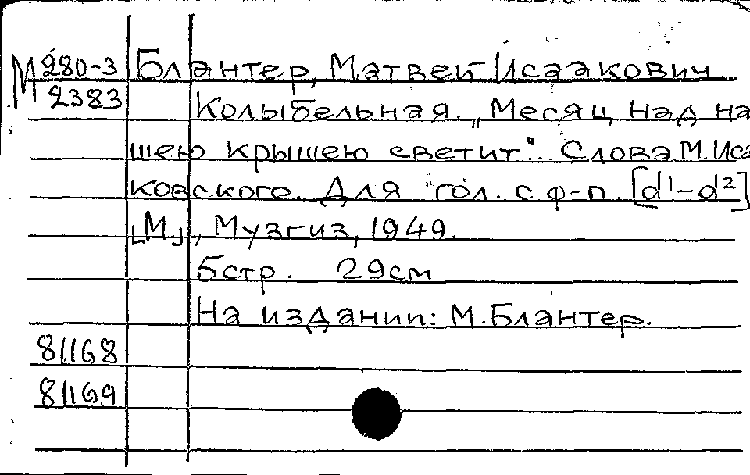 М 280-3 Блантер, Матвей Исаакович
2383 Колыбельная. „Месяц над на
шею крышею светит". Слова М. Иса
ковского. Для гол. с ф-п. [d¹-d²]
[М], Музгиз, 1949.
6стр. 29см
На издании: М. Блантер.
81168
81169